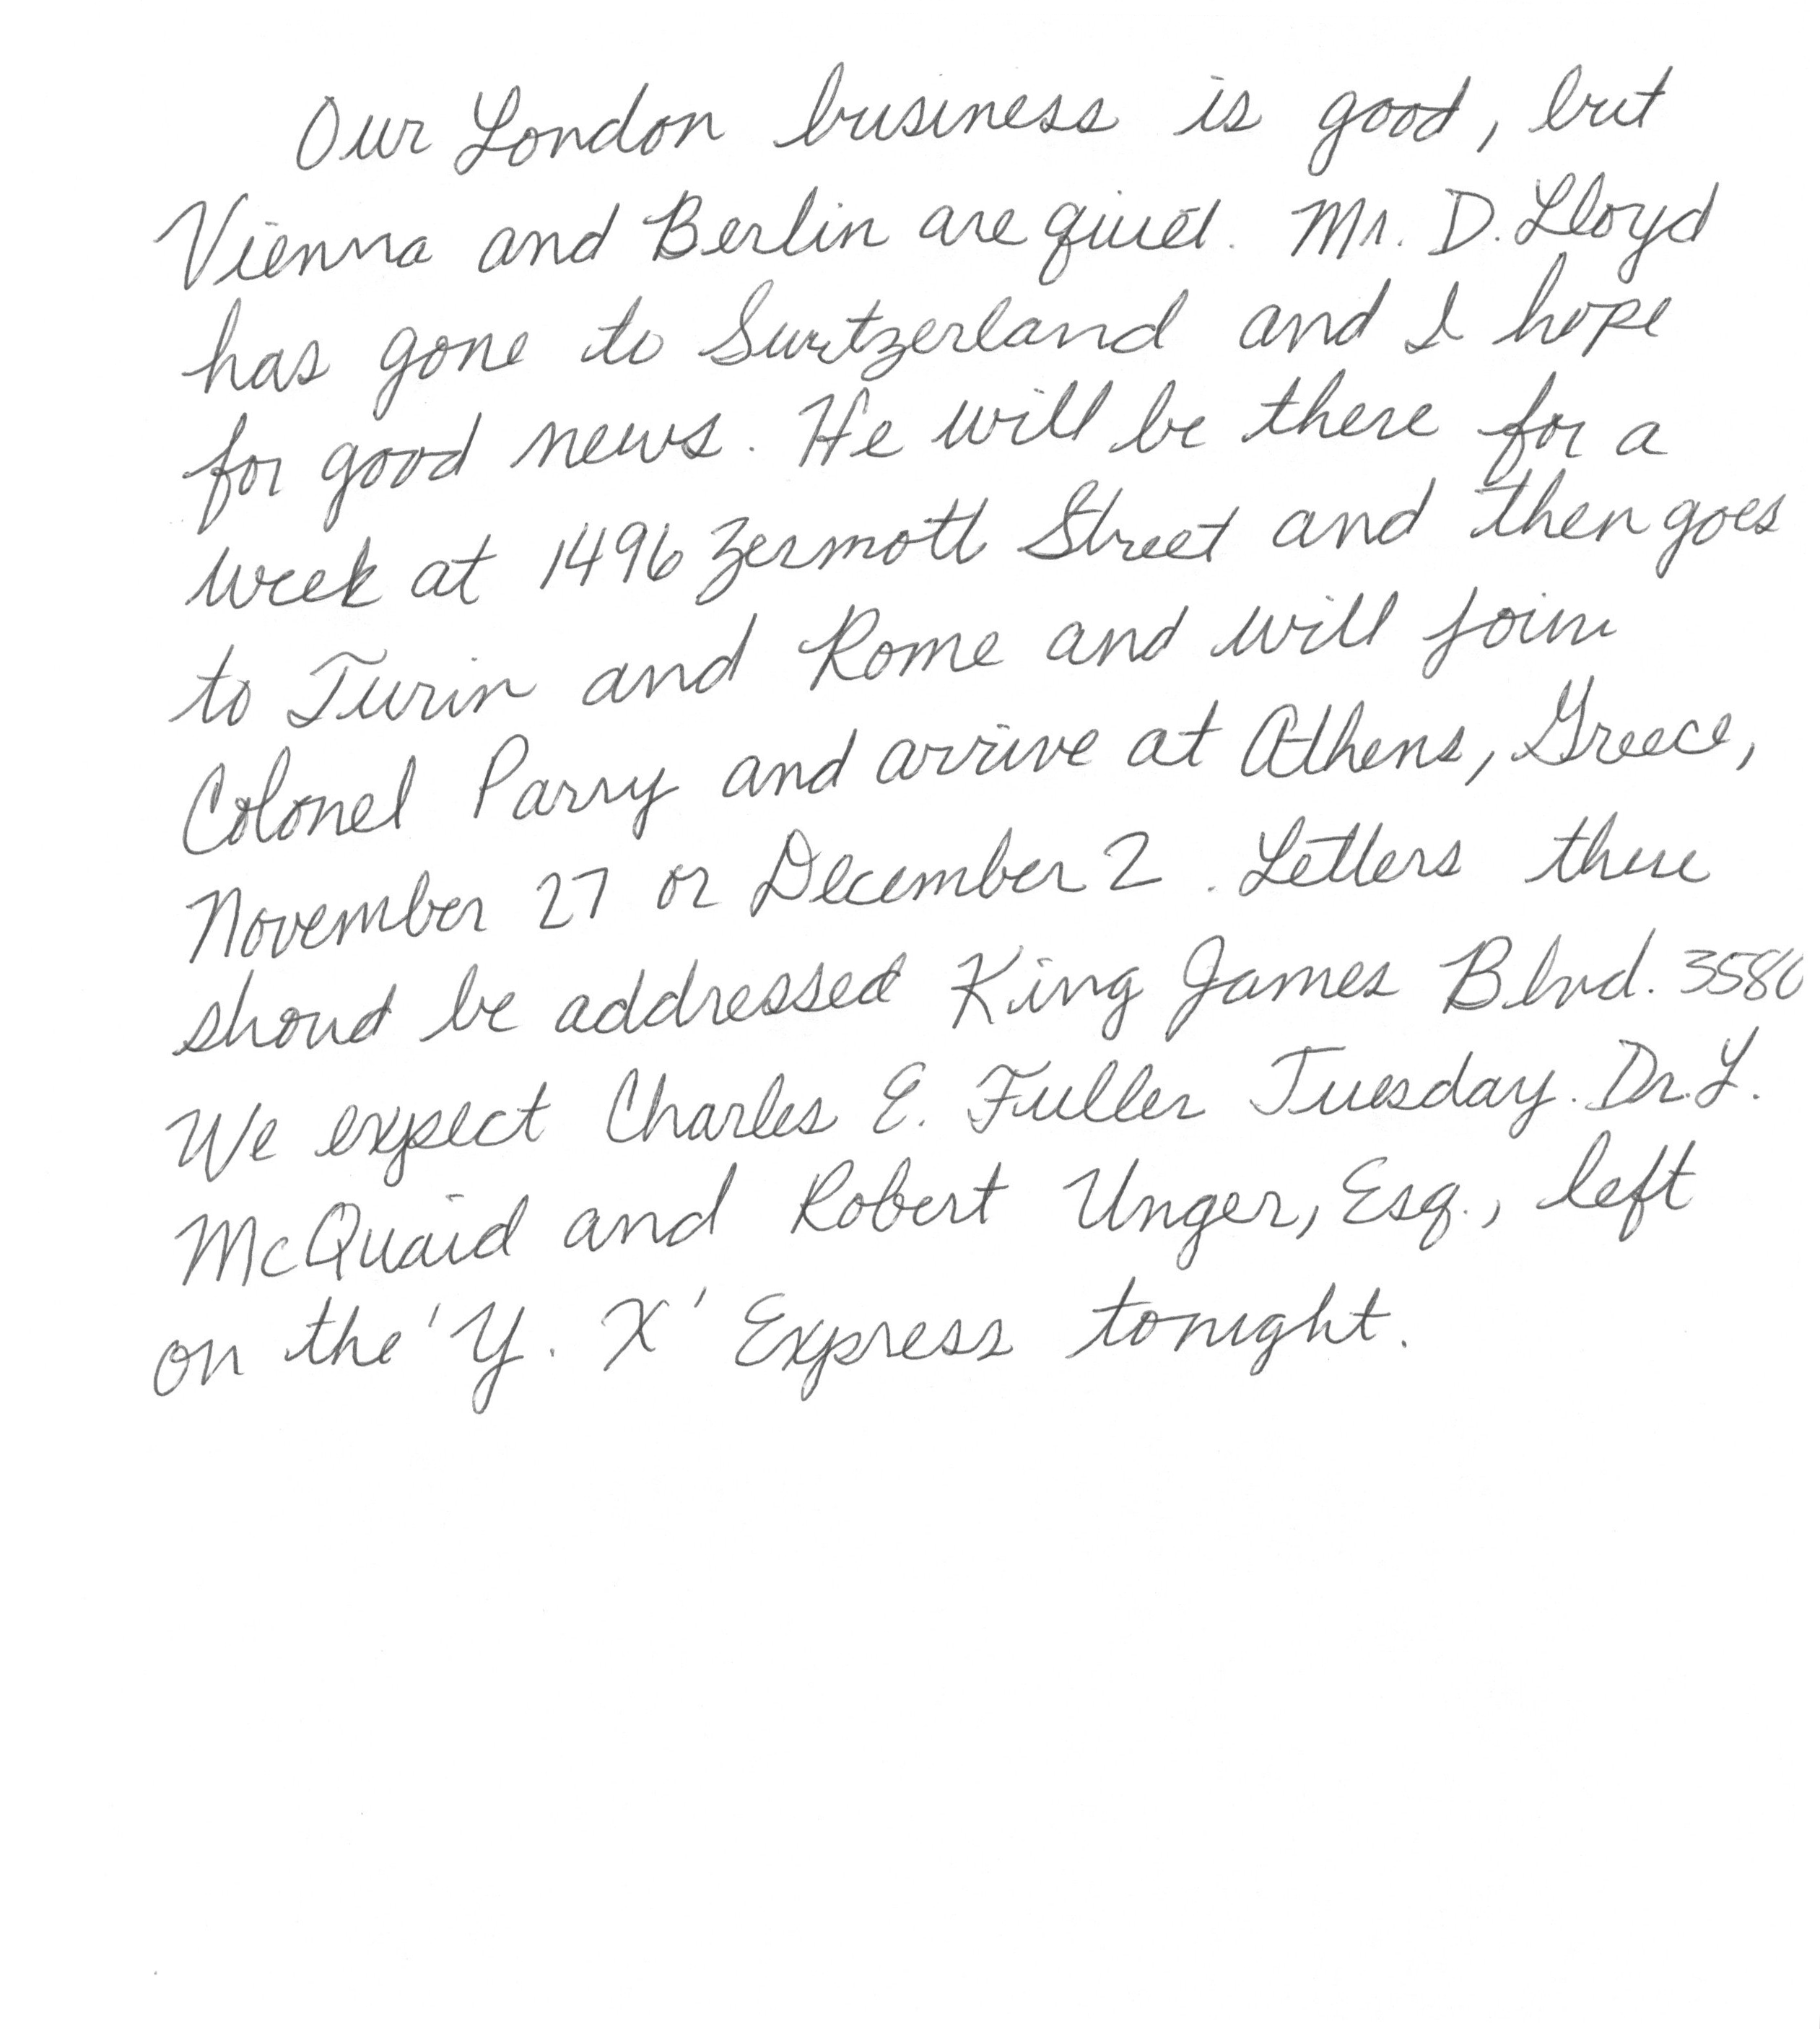 Our London business is good, but
Vienna and Berlin are quiet. Mr. D. Lloyd
has gone to Switzerland and I hope
for good news. He will be there for a
week at 1496 Zermott Street and then goes
to Turin and Rome and will join
Colonel Parry and arrive at Athens, Greece,
November 27 or December 2. Letters there
shoud be addressed King James Blvd. 3580
We expect Charles E. Fuller Tuesday. Dr. L.
McQuaid and Robert Unger, Esq., left
on the 'Y. X' Express tonight.